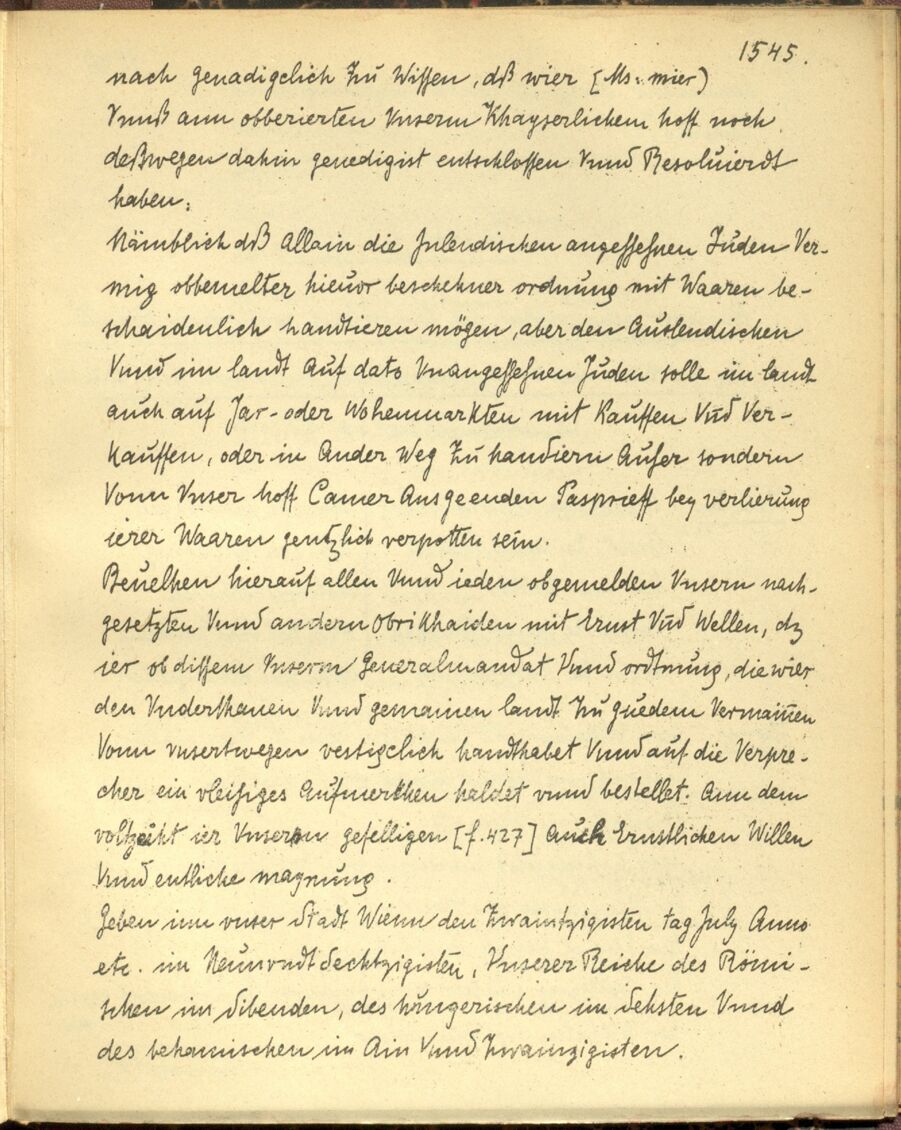 1545.
nach genadigclich Zu Wissen, dß wier [Ms: mier)
Vnnß ann obberierten Vnserm Khayserlichem hoff noch
deßwegen dahin genedigist entschlossen Vnnd Resoluierdt
haben:
Nämblich dß Allain die Inlendischen angesessnen Juden Ver-
mig obbemelter hieuor beschehner ordnung mit Waaren be-
schaidenlich handtieren mögen, aber den Auslendischen
Vnnd im landt Auf dato Vnangesessnen Juden solle im landt
auch auf Jar- oder Wohenmarkten mit Kauffen Vnd Ver-
kauffen, oder in Ander Weg Zu handiern Auser sondern
Vonn Vnser hoff Camer Ausgeenden Pasprieff bey verlierung
ierer Waaren gentzlich verpotten sein.
Beuelhen hierauf allen Vnnd ieden obgemelden Vnsern nach-
gesetzten Vnnd andern Obrikhaiden mit Ernst Vnd Wellen, dz
ier ob dissem Vnserm Generalmandat Vnnd ordtnung, die wier
den Vnderthanen Vnnd gemainen landt Zu guedem Vermainen
Vonn vnsertwegen vestigclich handthabet Vnnd auf die Verpre-
cher ein vleisiges Aufmerkhen haldet vnnd bestellet. Ann dem
voltzeiht ier Vnsern gefelligen [f. 427] Auch Ernstlichen Willen
Vnnd entliche magnung.
Geben inn vnser Stadt Wienn den Zwaintzigisten tag July Anno
etc. im Neunvndt Sechtzigisten, Vnserer Reiche des Römi-
schen im Sibenden, des hungerischen im Sehsten Vnnd
des behamischen im Ain Vnnd Zwainzigisten.